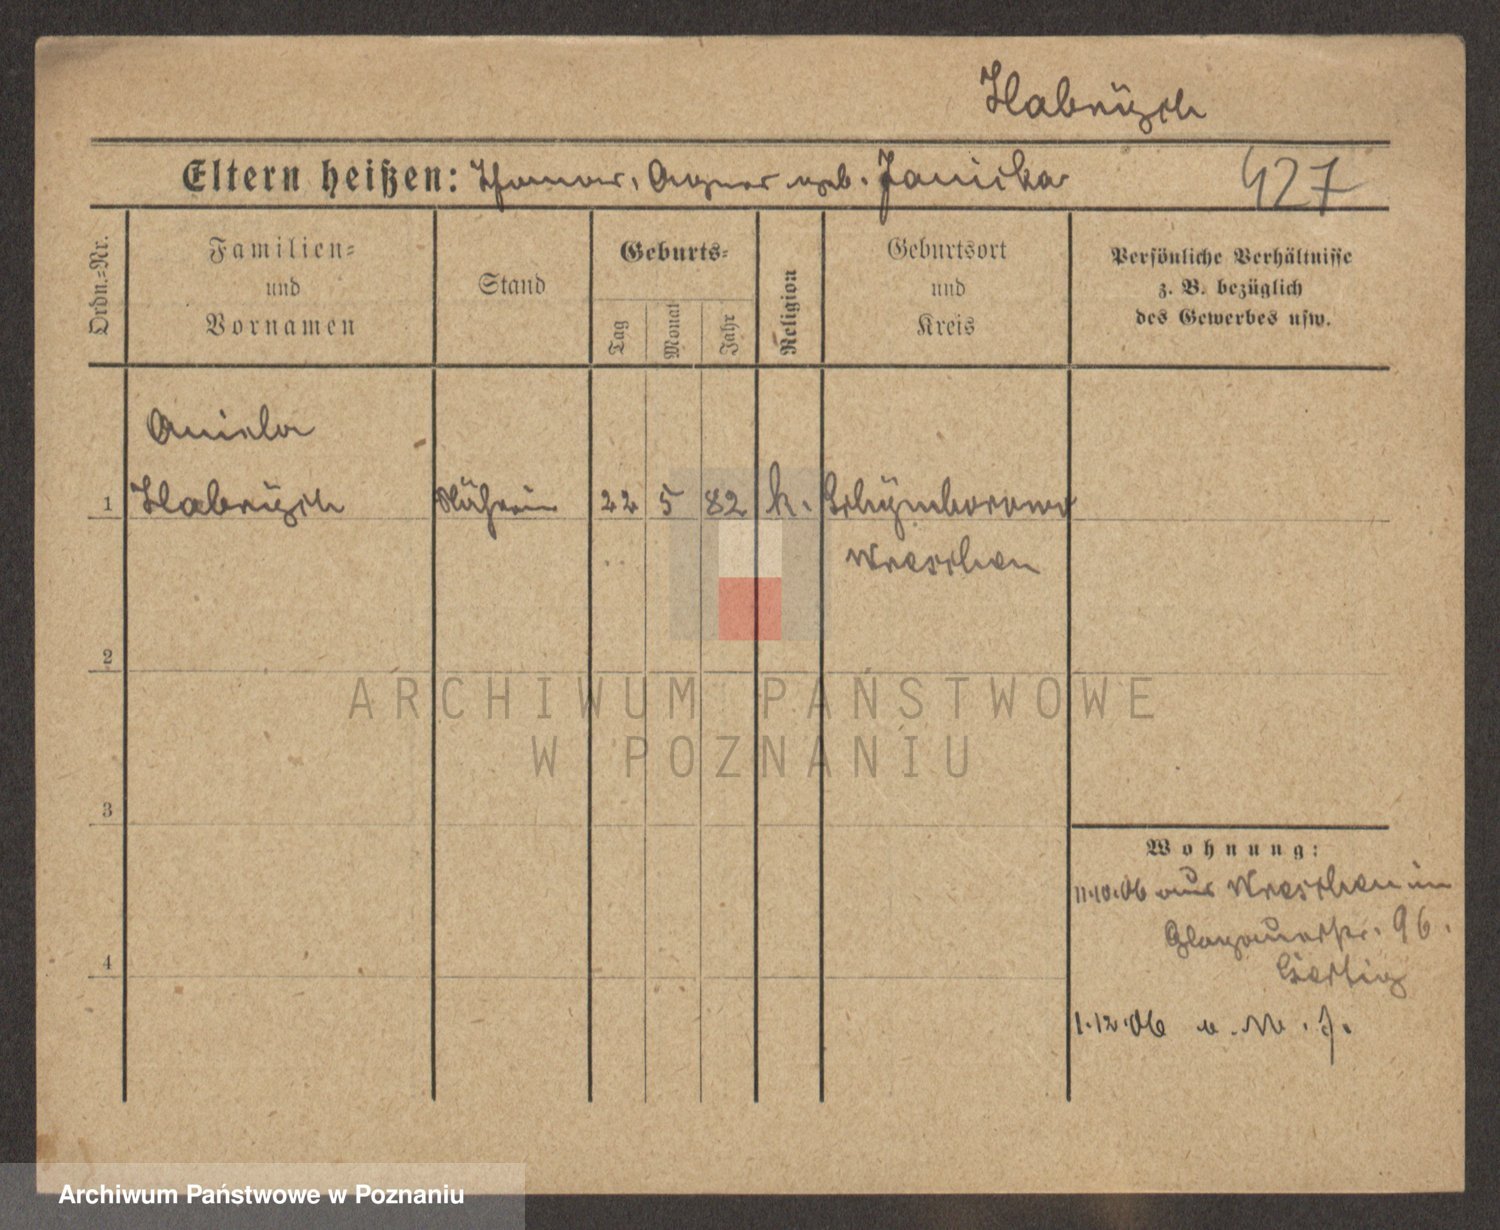 Habrÿch
Eltern heißen: Thomas, Agnes geb. Janicka
427
Ordn.=Nr.
Familien=
und
Vornamen
Stand
Geburts=
Tag
Monat
Jahr
Religion
Geburtsort
und
Kreis
Persönliche Verhältnisse
z. B. bezüglich
des Gewerbes usw.
Aniela
1 Habrÿch Näherin 22 5 82 k.
Wreschen
2
3
4
Wohnung:
11.10.06 aus Wreschen in
Glogauerstr. 96.
1.12.06 n. M. 7.
ARCHIWUM PAŃSTWOWE
W POZNANIU
Archiwum Państwowe w Poznaniu